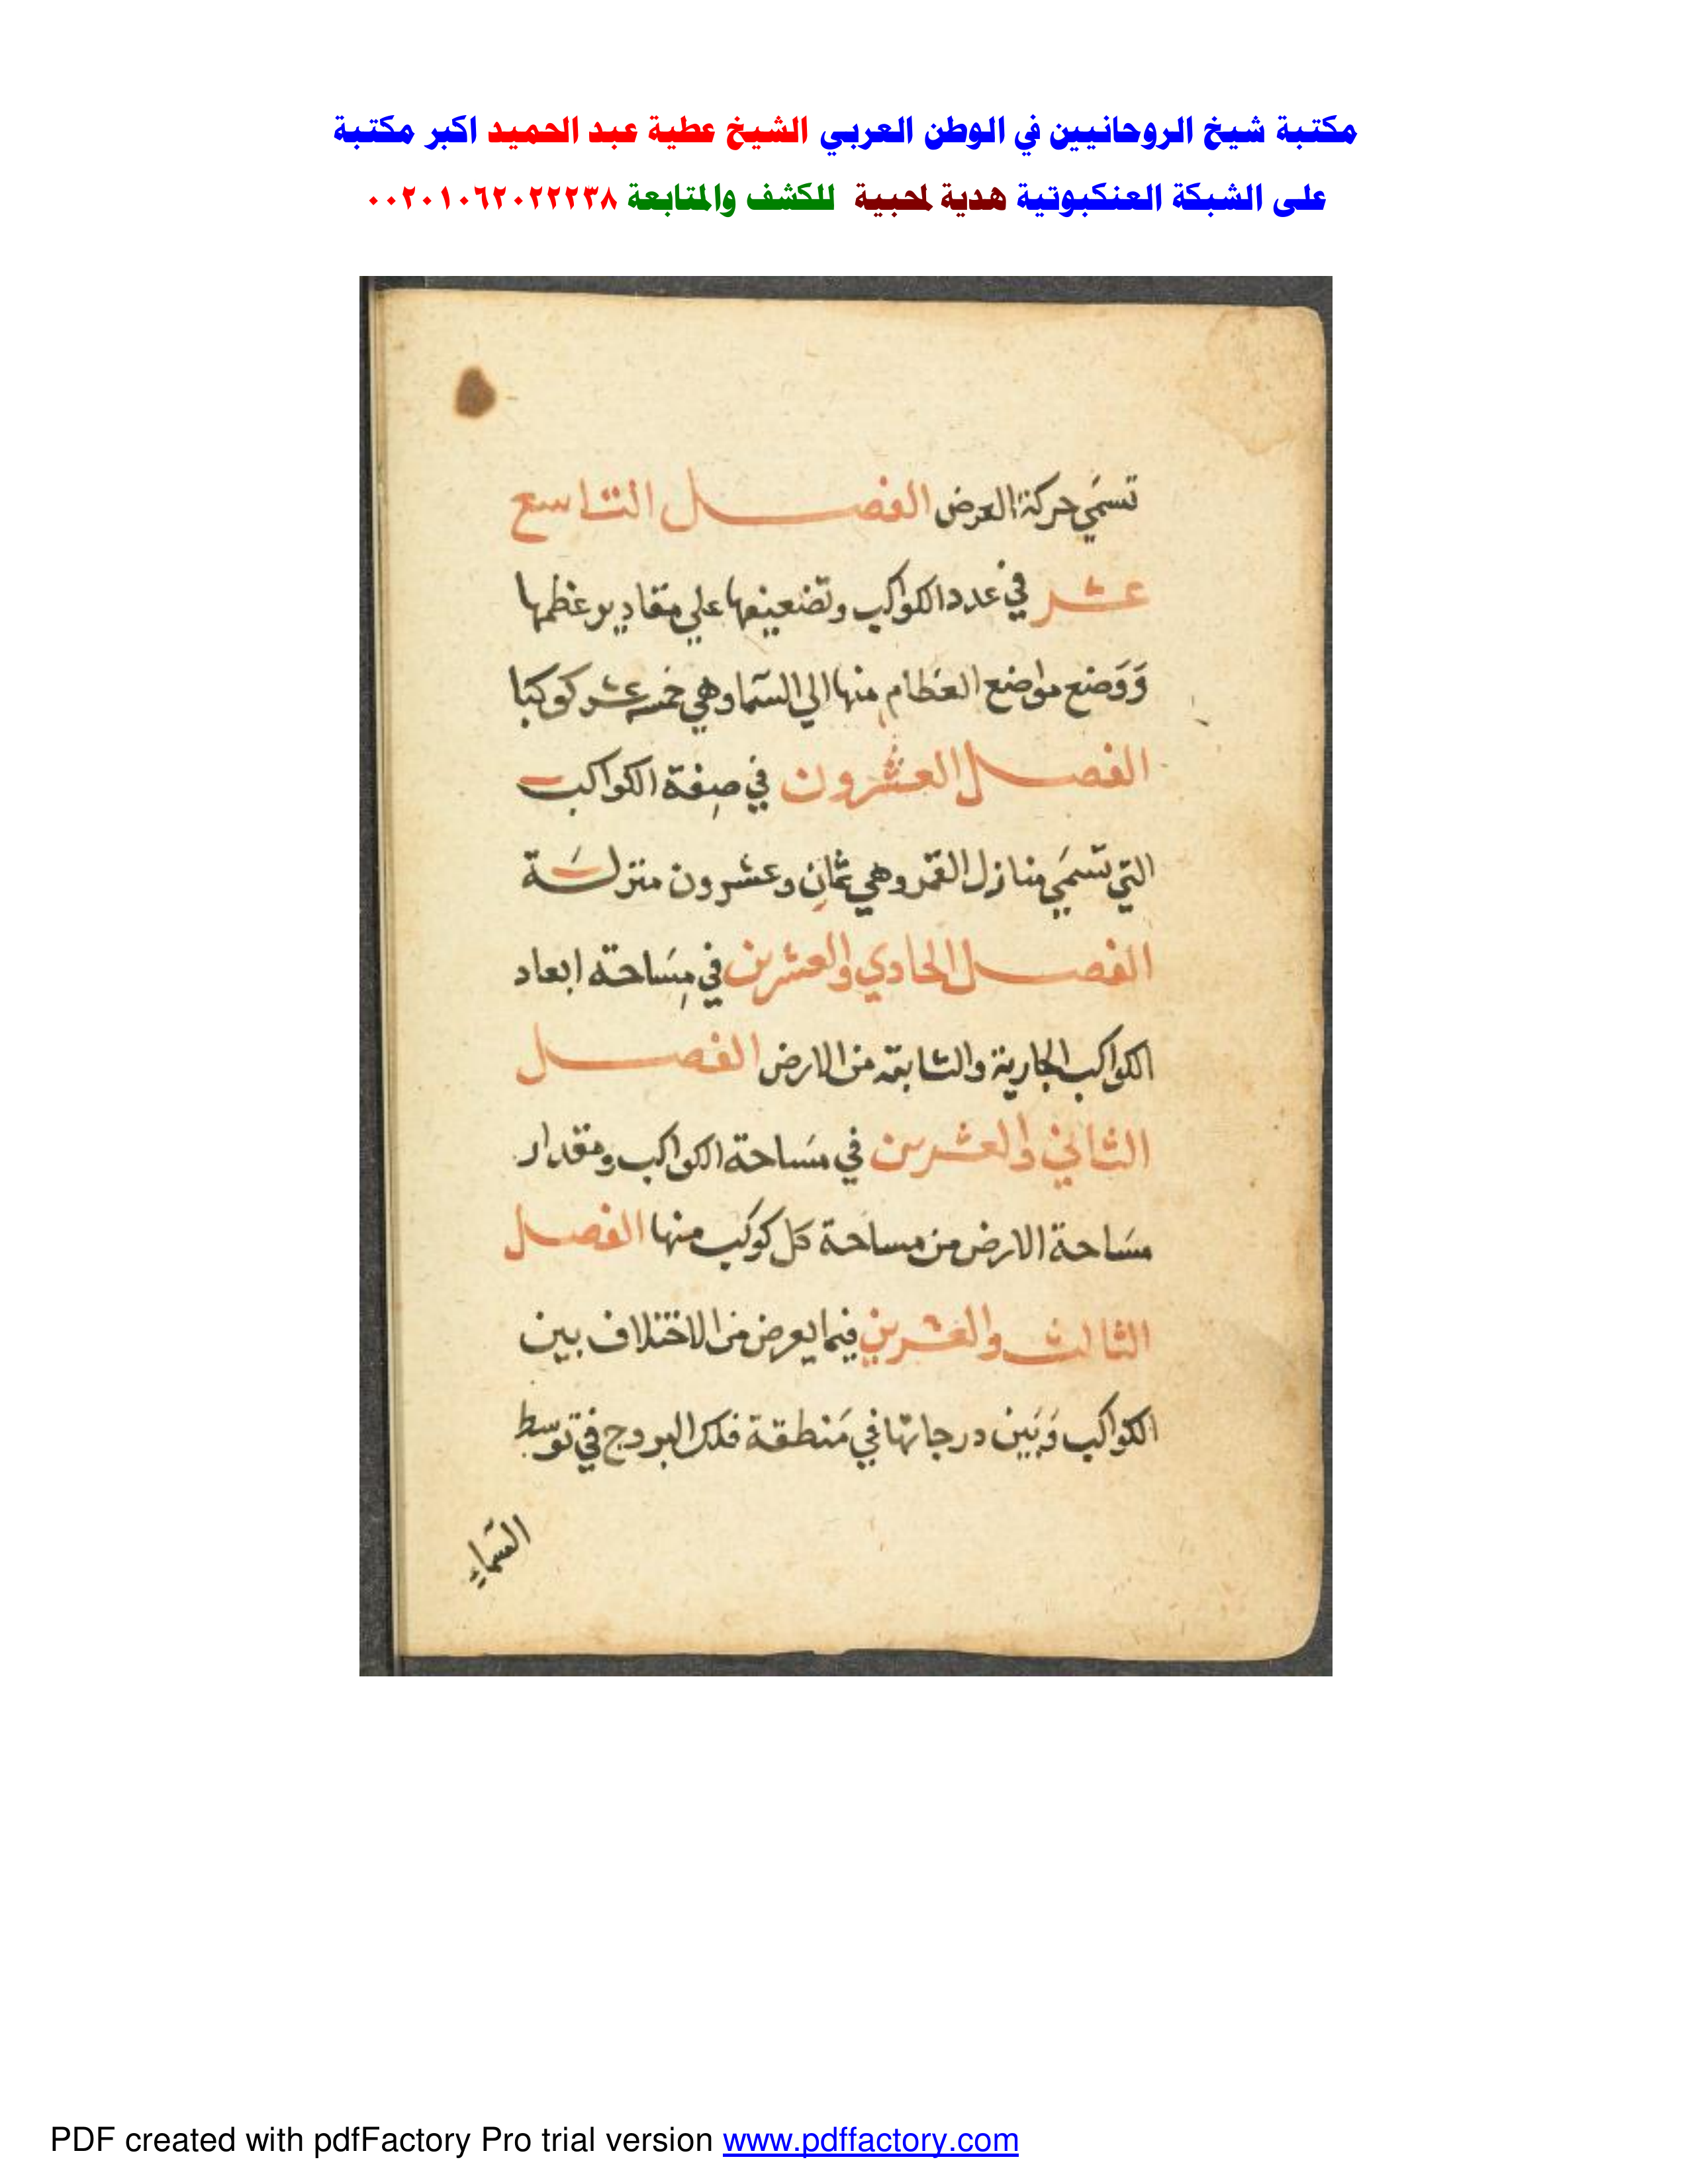 مكتبة شيخ الروحانيين في الوطن العربي الشيخ عطية عبد الحميد اكبر مكتبة
على الشبكة العنكبوتية هدية لمحبية للكشف والمتابعة ٠٠٢٠١٠٦٢٠٢٢٢٣٨
تسمَي حركة العرض الفصل التاسع
عشر في عدد الكواكب وتضعيفها علي مقادير عظمها
وَوَضع مواضع العظام منها الي السما وهي خمسه عشر كوكبا
الفصل العشرون في صِفة الكواكب
التي تسمَي منازل القمر وهي ثمانِ وعشرون منزلَة
الفصل الحادي والعشرين في مِسَاحة ابعاد
الكواكب الجارية والثابتة من الارض الفصل
الثاني والعشرين في مسَاحة الكواكب ومقدار
مسَاحة الارض من مساحة كل كوكب منها الفصل
الثالث والعشرين فيما يعرض من الاختلاف بين
الكواكب وَبَين درجاتها في مَنطقة فلك البروج في توسط
السماءِ
PDF created with pdfFactory Pro trial version www.pdffactory.com